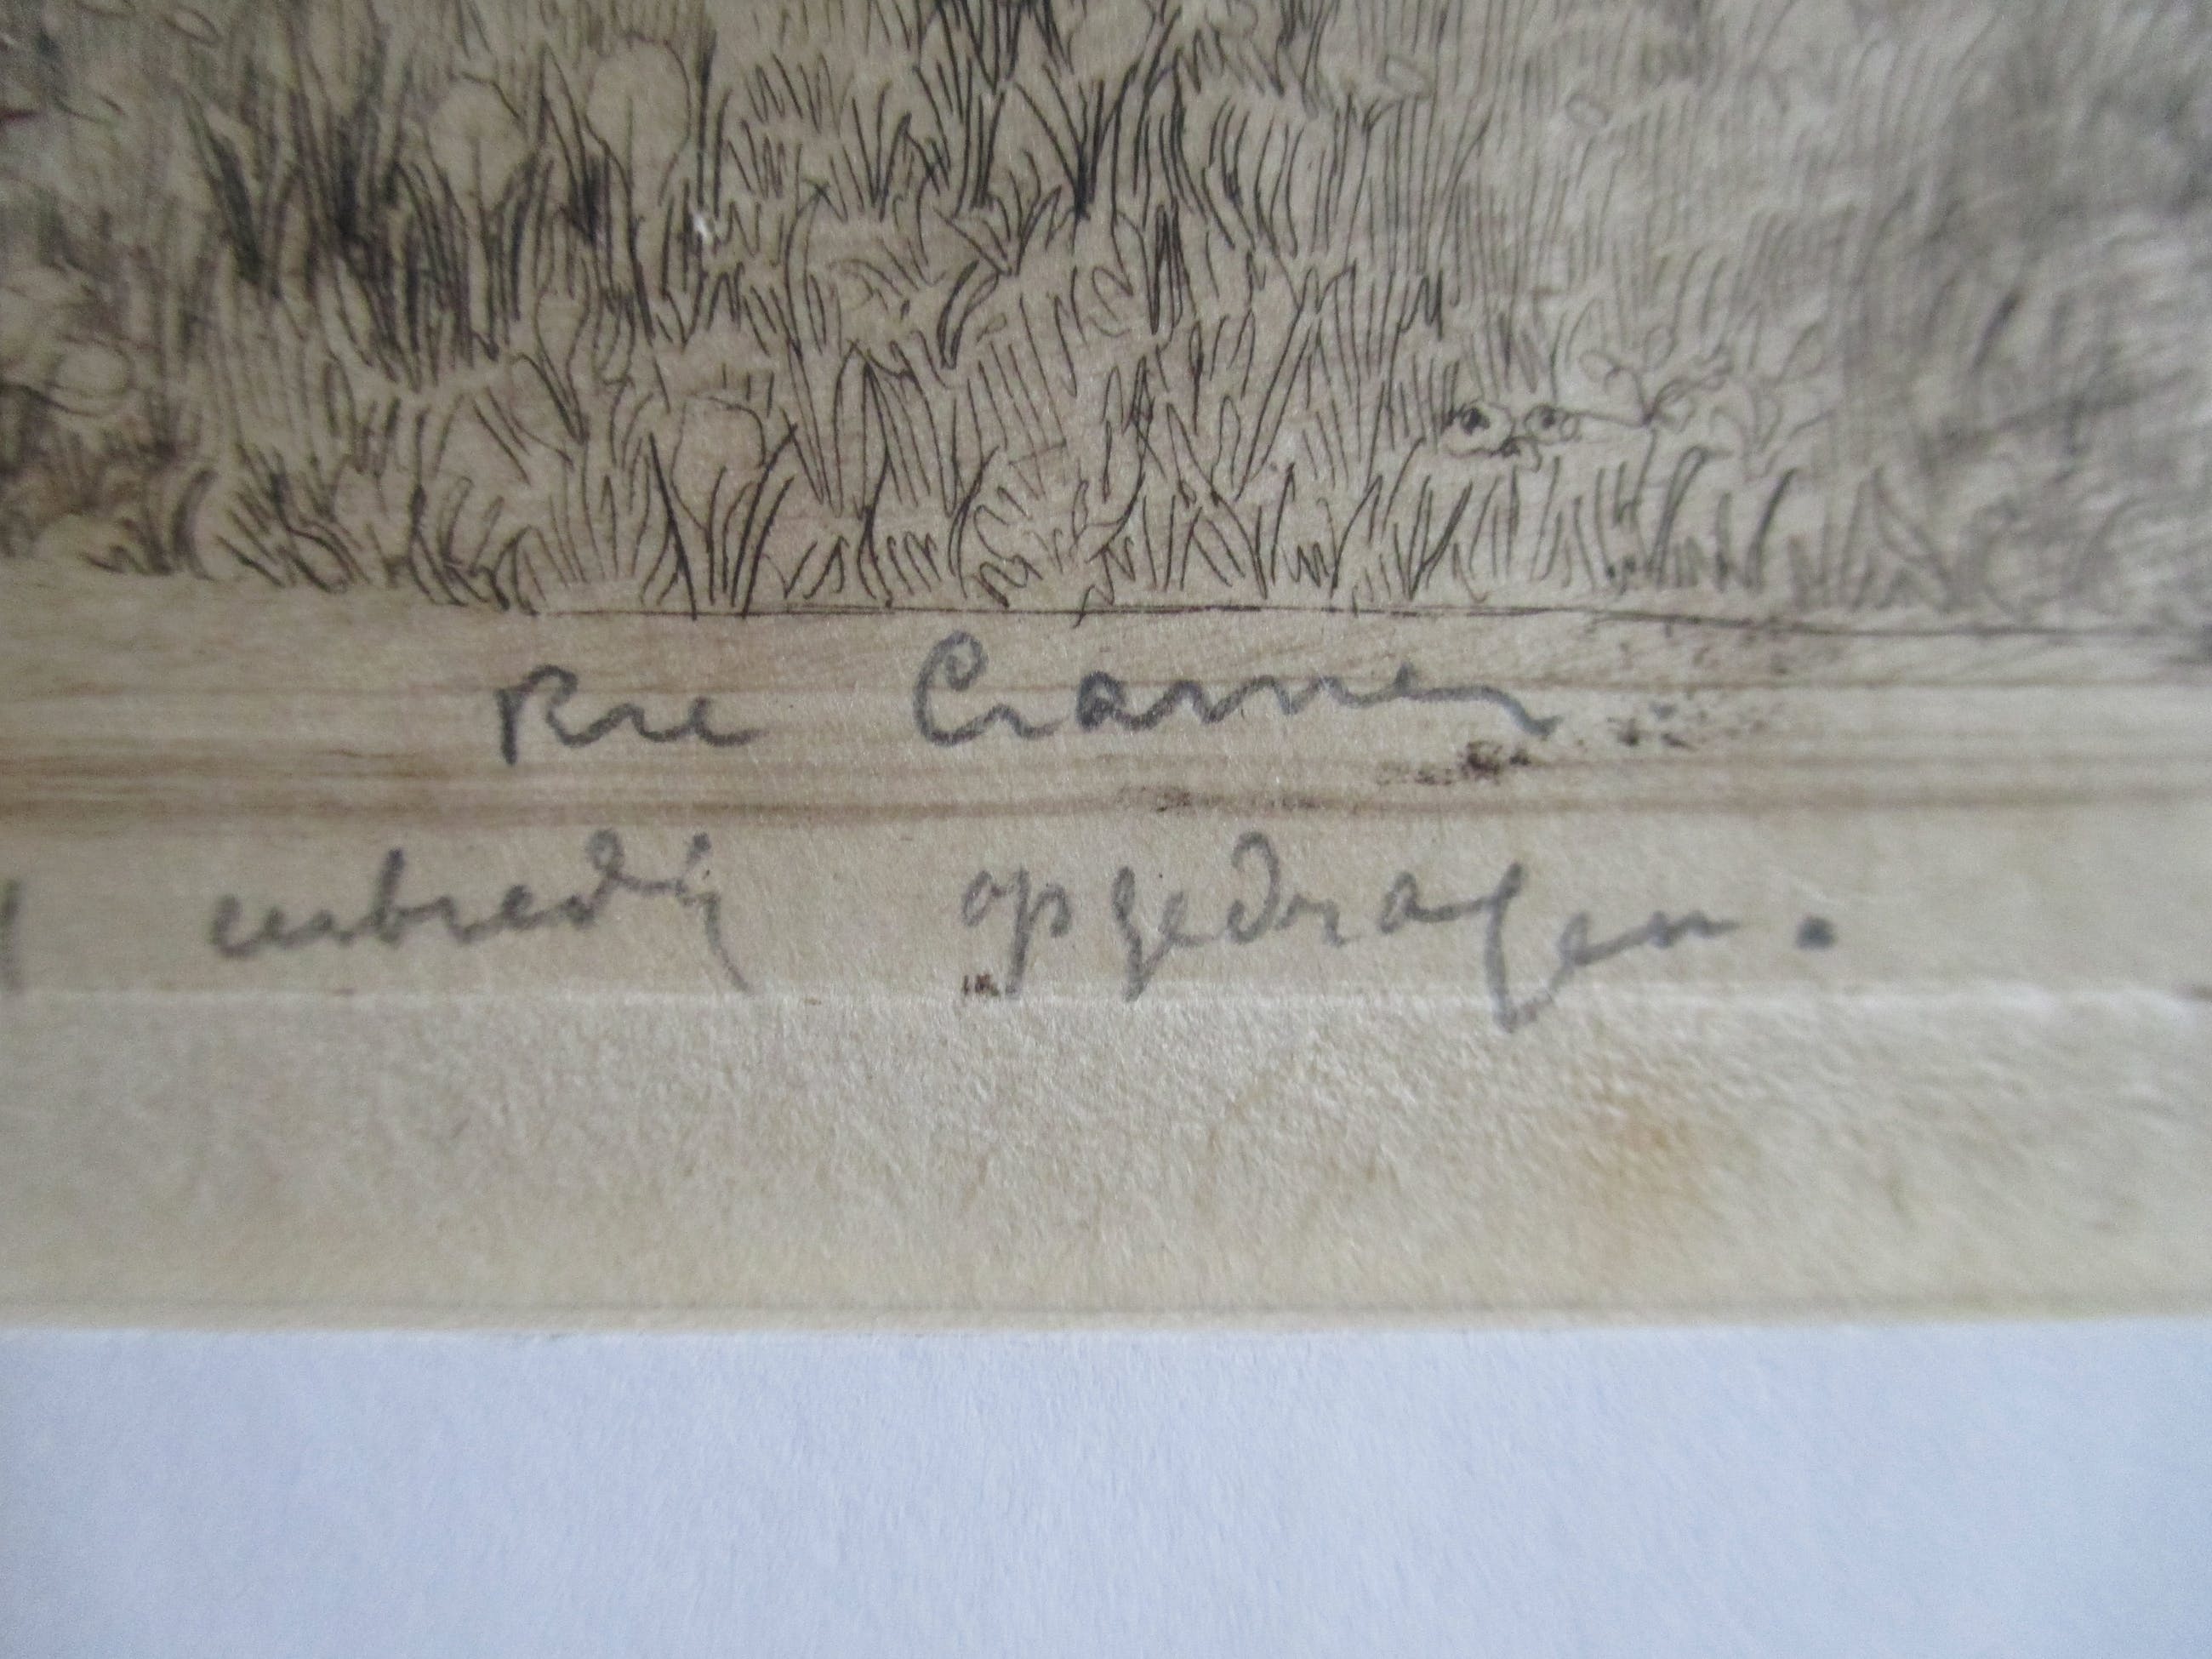 Rie Cramer
eerbiedig opgedragen.